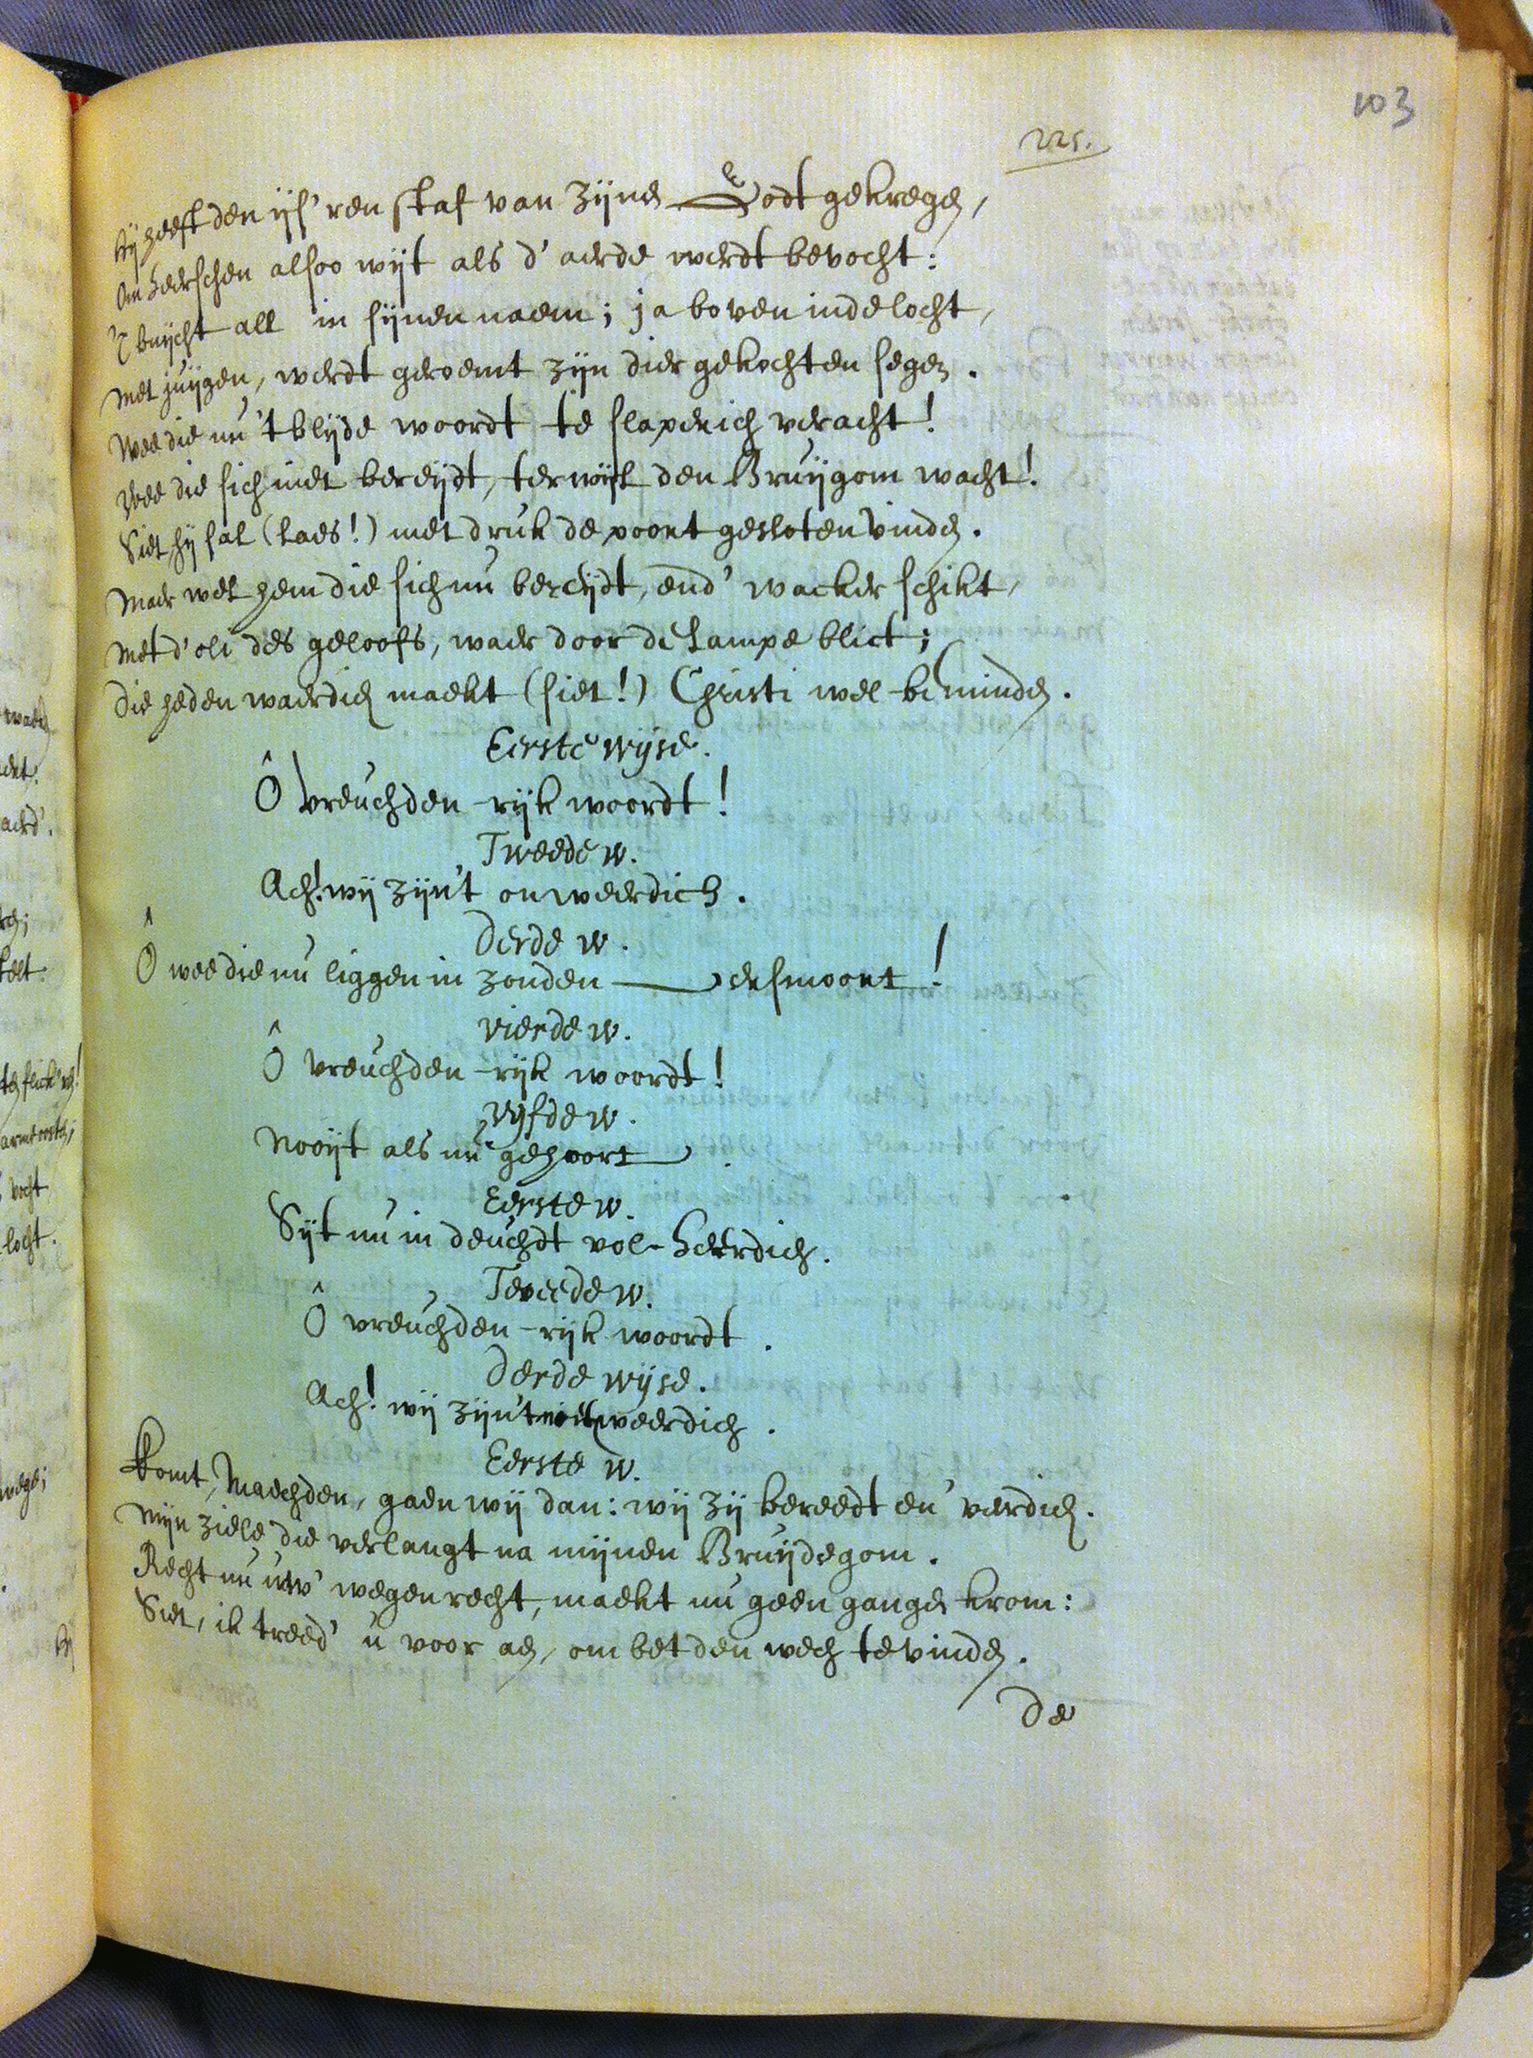 103
225.
Hij heeft den ijs'ren staf van zijne Godt gekregen,
Om heerschen alsoo wijt als d'aerde werdt bevocht:
't buijcht all in sijnen naem; ja boven inde locht,
Met juijgen, werdt geroemt zijn dier gekochten segen.
Wee die nu 't blijde woordt te slaperich veracht!
Wee die sich niet bereijdt, terwijl den Bruijgom wacht!
Siet hij sal (laes!) met druk de poort gesloten vinden.
Maer wel hem die sich nu bereijdt, end' wacker schikt,
Met d'oli des geloofs, waer door de Lampe blict;
Die heden waerdich maekt (siet!) Christi wel-beminden.
Eerste wijse.
Ô vreuchden-rijk woordt!
Tweede w.
Ach! wij zijn't onweerdich.
Derde w.
Ô wee die nu liggen in zonden versmoort!
Vierde w.
Ô vreuchden-rijk woordt!
Vijfde w.
Nooijt als nu gehoort.
Eerste w.
Sijt nu in deuchdt vol-heerdich.
Tweede w.
Ô vreuchden-rijk woordt.
Derde wijse.
Ach! wij zijn't weerdich.
Eerste w.
Komt, Maechden, gaen wij dan: wij zij bereedt en' verdich.
Mijn ziele die verlangt na mijnen Bruijdegom.
Recht nu uw' wegen recht, maekt nu geen gangen krom:
Siet, ik treed' u voor aen, om bet den wech te vinden.
De